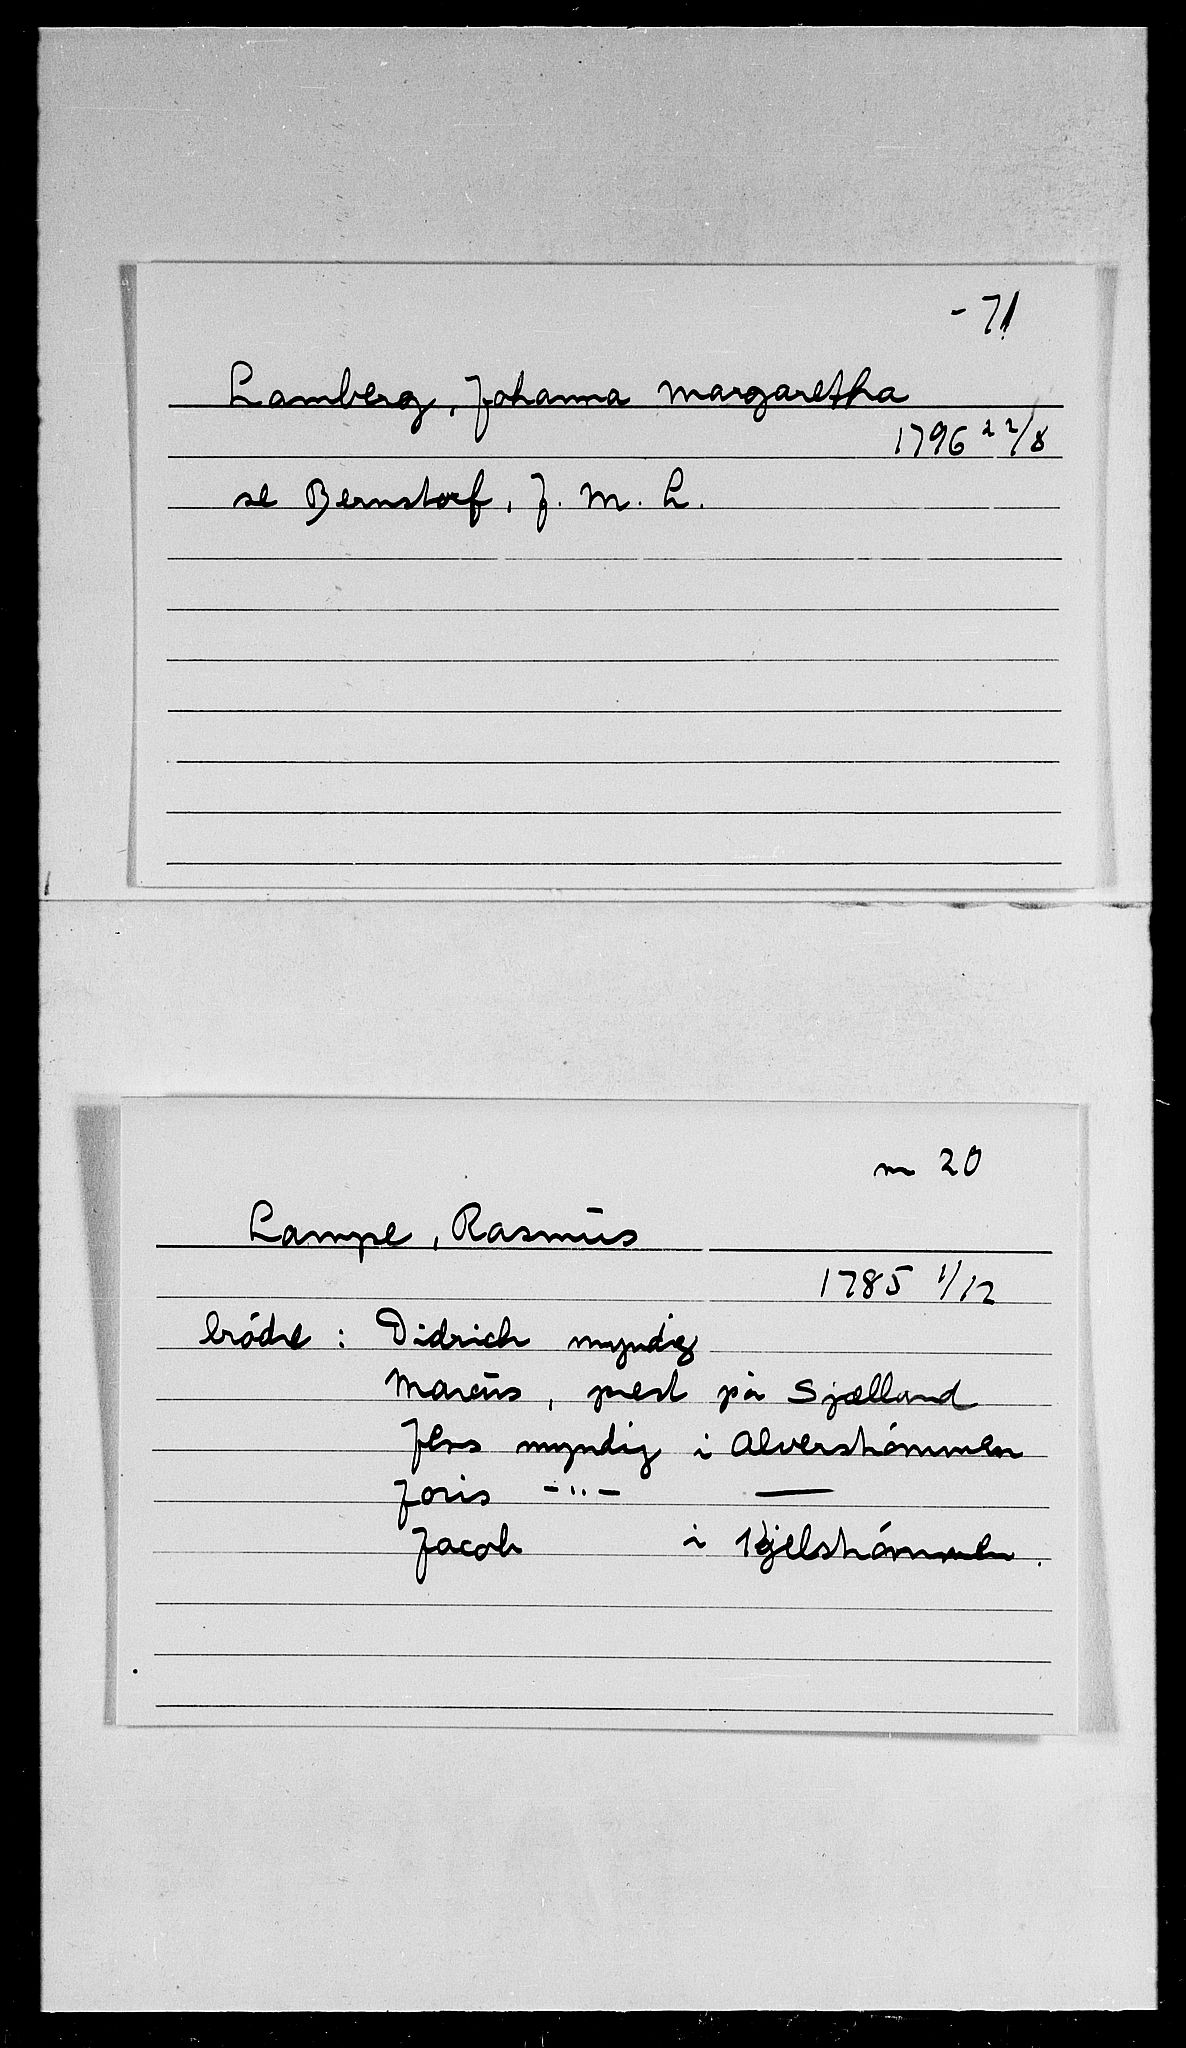 - 71
Lamberg, Johanna Margaretha
1796 22/8
se Bernstorf, J. M. L.
m 20
Lampe, Rasmus
1785 1/12
brödre : Didrich myndig
Marcus, prest på Sjælland
Jens myndig i Alverstrømmen
Joris -"- —
Jacob i Kjelstrømmen.